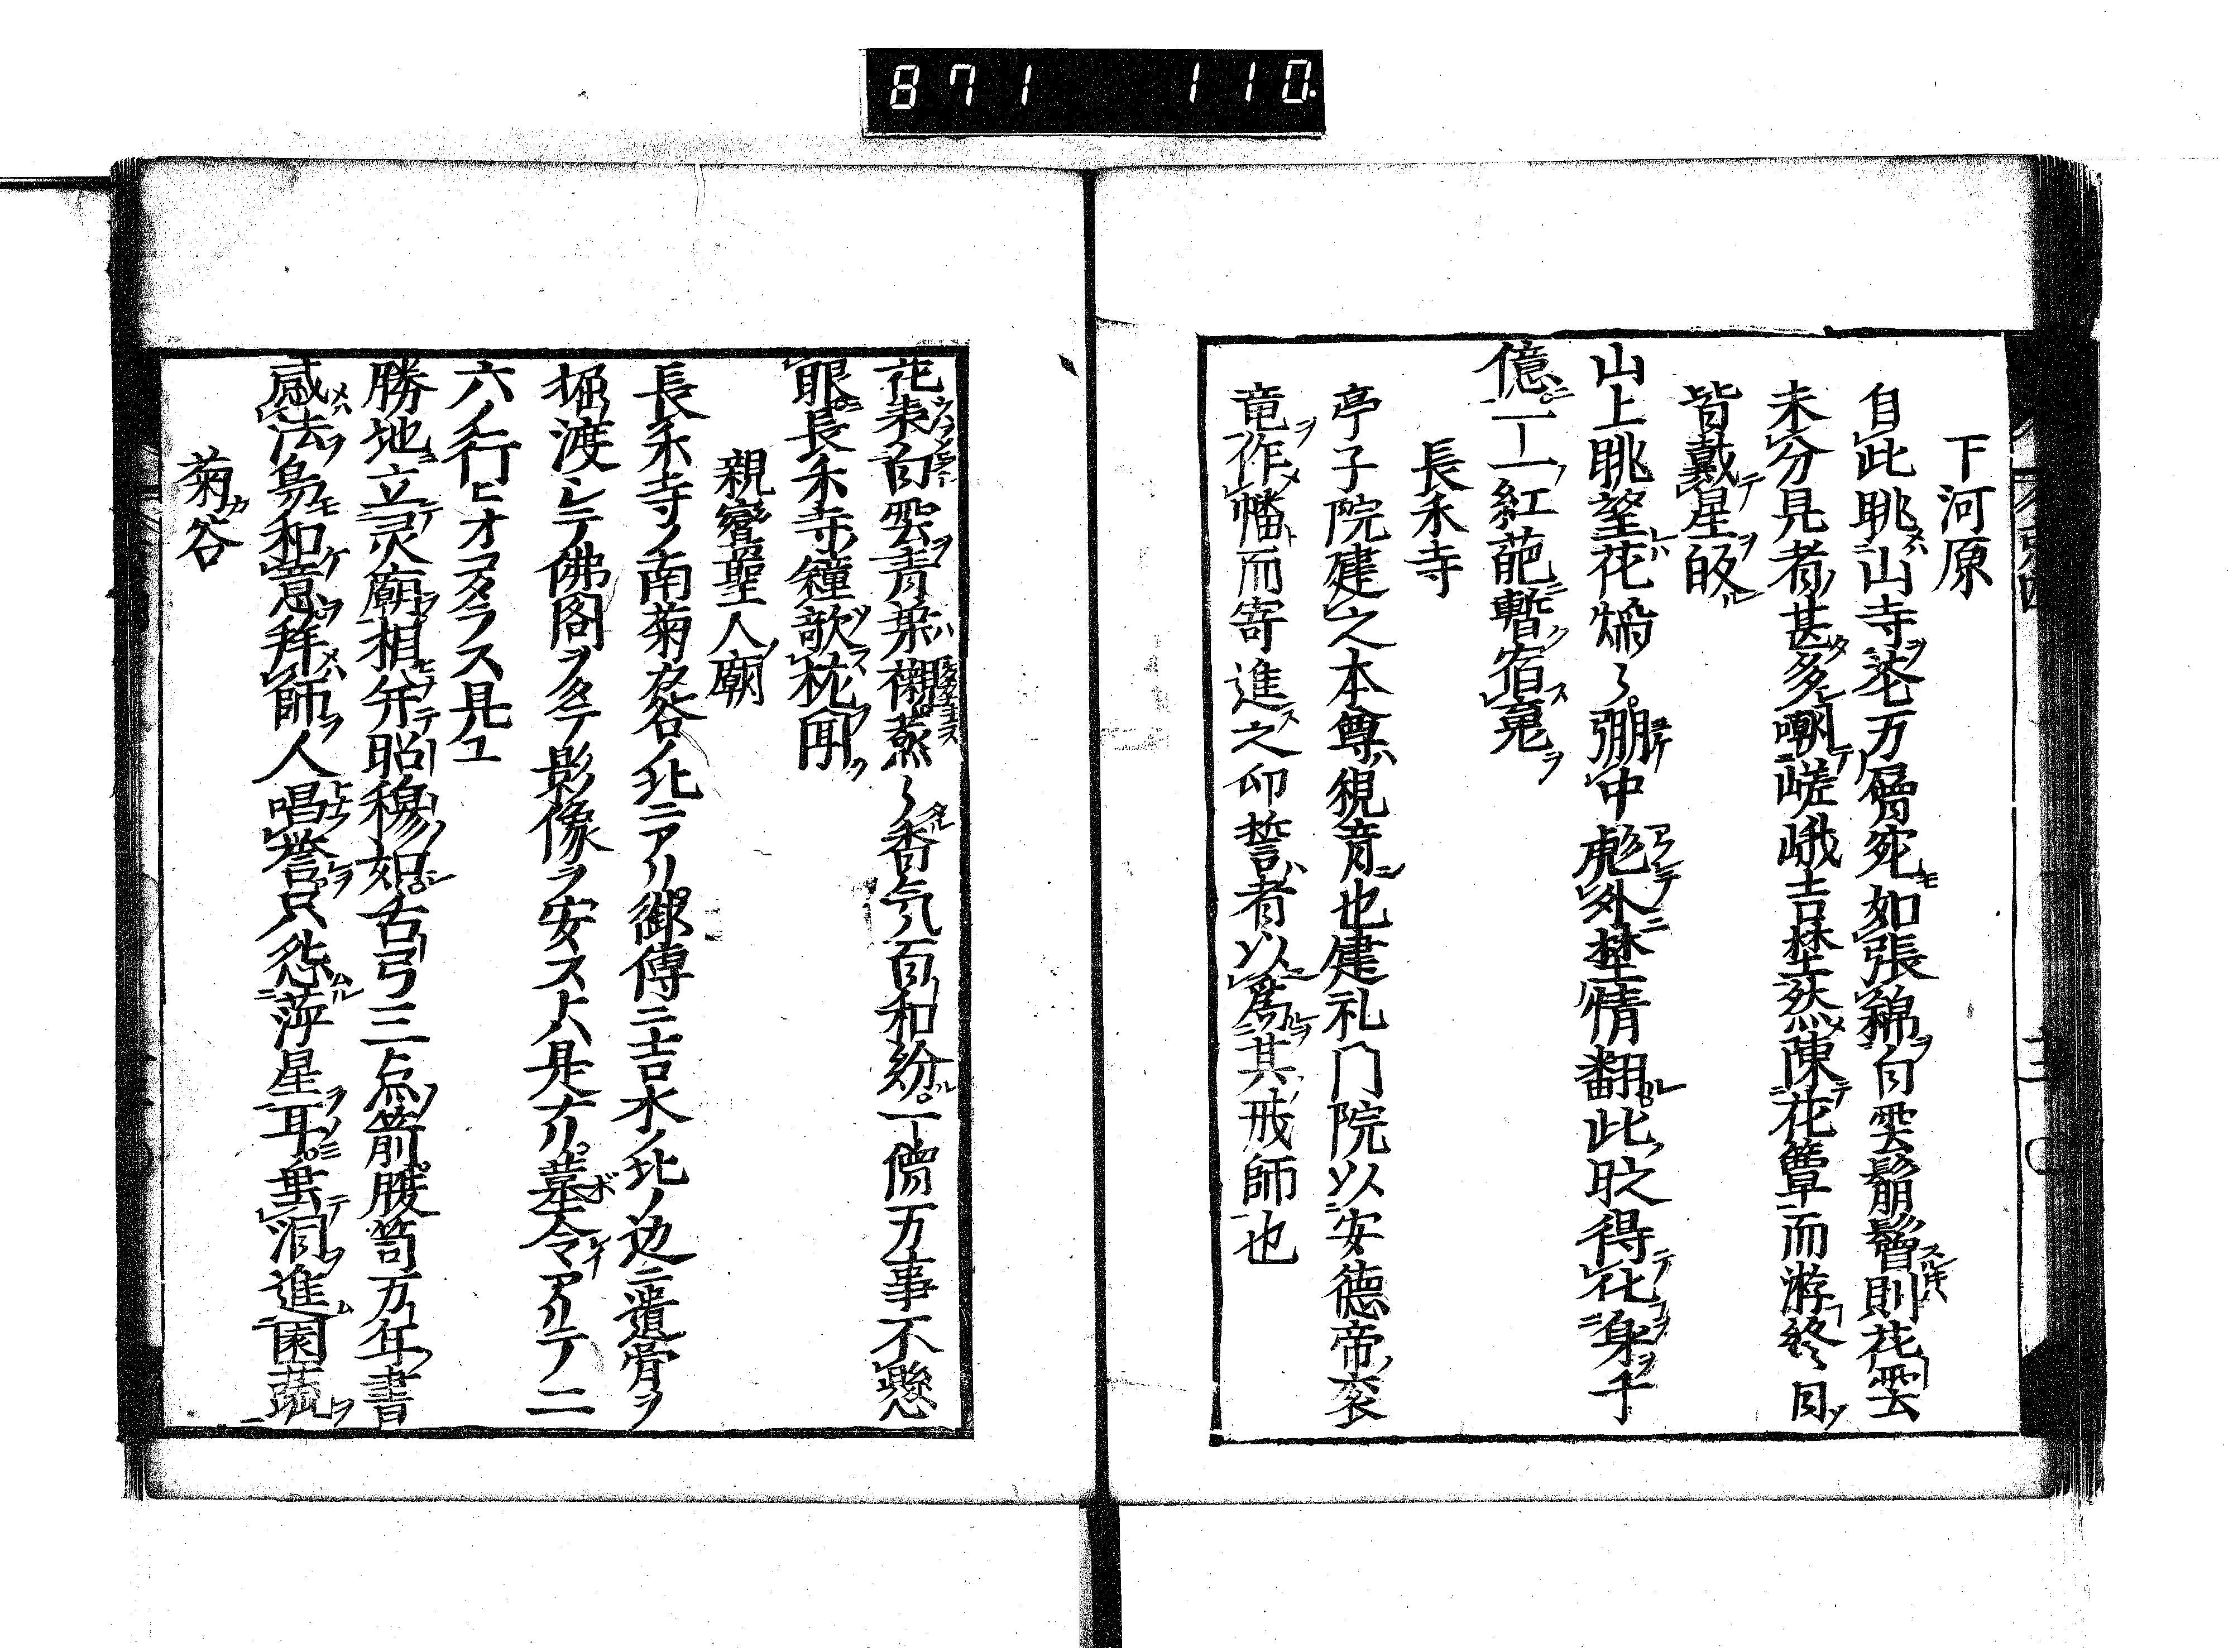 871 110
下河原
自此眺山寺花万層宛如張錦白雲鬅鬙則花雲
未分見者甚多嘲嵯峨吉埜然陳花簟而游終日
皆戴星皈
山上眺望花爛々弸中彪外埜情翻此時得化身千
億一一紅葩暫宿寃
長禾寺
亭子院建之本尊觀音也建礼门院以安德帝衮
竜作幡而寄進之印誓者以爲其戒師也
花表白雲青葉襯蒸々香気百和紛一傍万事不懸
眼長禾寺鐘欹枕聞
親鸞聖人廟
長禾寺ノ南菊谷ノ北ニアリ御傳ニ吉水ノ北ノ边ニ遺骨ヲ
堀渡シテ佛阁ヲタテ影像ヲ安ストハ是ナリ墓令アリテ二
六ノ行ヒオコタラス見ユ
勝地立灵廟相并昭穆如古弓三点箭腹笥万年書
感法鳥和意拜師人唱誉只怨萍星耳垂洞進園蔬
菊谷